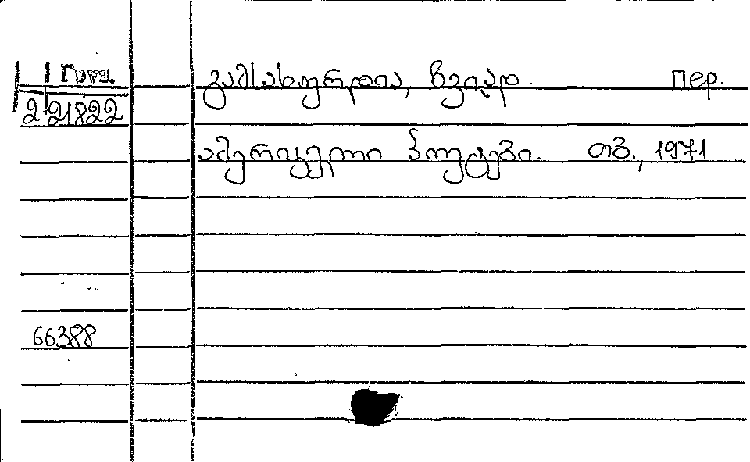 გამსახურდია, ზვიად пер.
2 21822
ამერიკელი პოეტები. თბ., 1971
66388